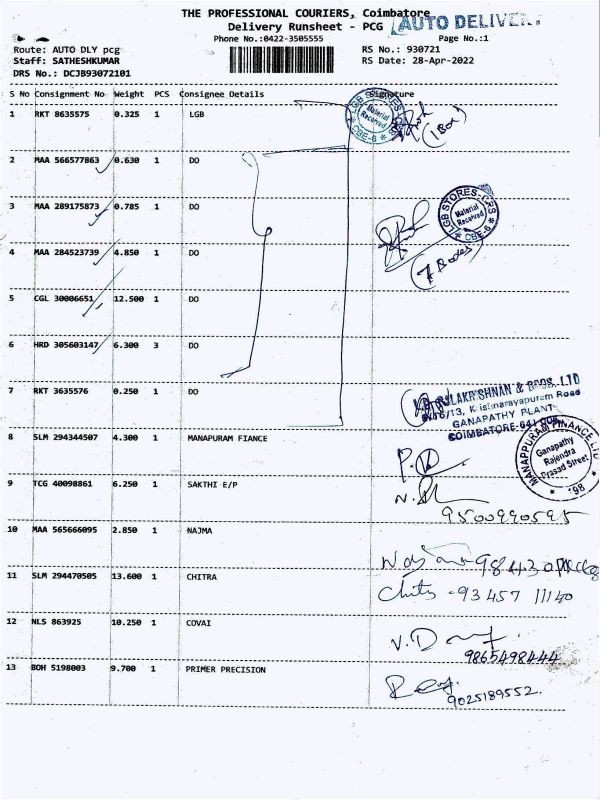 THE PROFESSIONAL COURIERS, Coimbatore
Delivery Runsheet - PCG
AUTO DELIVERY
Phone No.:0422-3505555
Page No.:1
Route: AUTO DLY pcg
RS No.: 930721
Staff: SATHESHKUMAR
RS Date: 28-Apr-2022
DRS No.: DCJB93072101
S No Consignment No Weight PCS Consignee Details Signature
1 RKT 8635575 0.325 1 LGB
LGB STORES
Material Received
CBE-6
(1 Box)
2 MAA 566577863 0.630 1 DO
3 MAA 289175873 0.785 1 DO
LGB STORES-CPS
Material Received
CBE-6
4 MAA 284523739 4.850 1 DO
(7 Boxes)
5 CGL 30006651 12.500 1 DO
6 HRD 305603147 6.300 3 DO
7 RKT 3635576 0.250 1 DO
BALAKRISHNAN & BROS. LTD
Krishnarayapuram Road
GANAPATHY PLANT
COIMBATORE-641 006
8 SLM 294344507 4.300 1 MANAPURAM FIANCE
MANAPPURAM FINANCE LTD
Ganapathy
Rajendra
Prasad Street
'98
9 TCG 40098861 6.250 1 SAKTHI E/P
9500990595
10 MAA 565666095 2.850 1 NAJMA
11 SLM 294470505 13.600 1 CHITRA
Chitra - 93457 11140
12 NLS 863925 10.250 1 COVAI
9865498444
13 BOH 5198003 9.700 1 PRIMER PRECISION
9025189552.